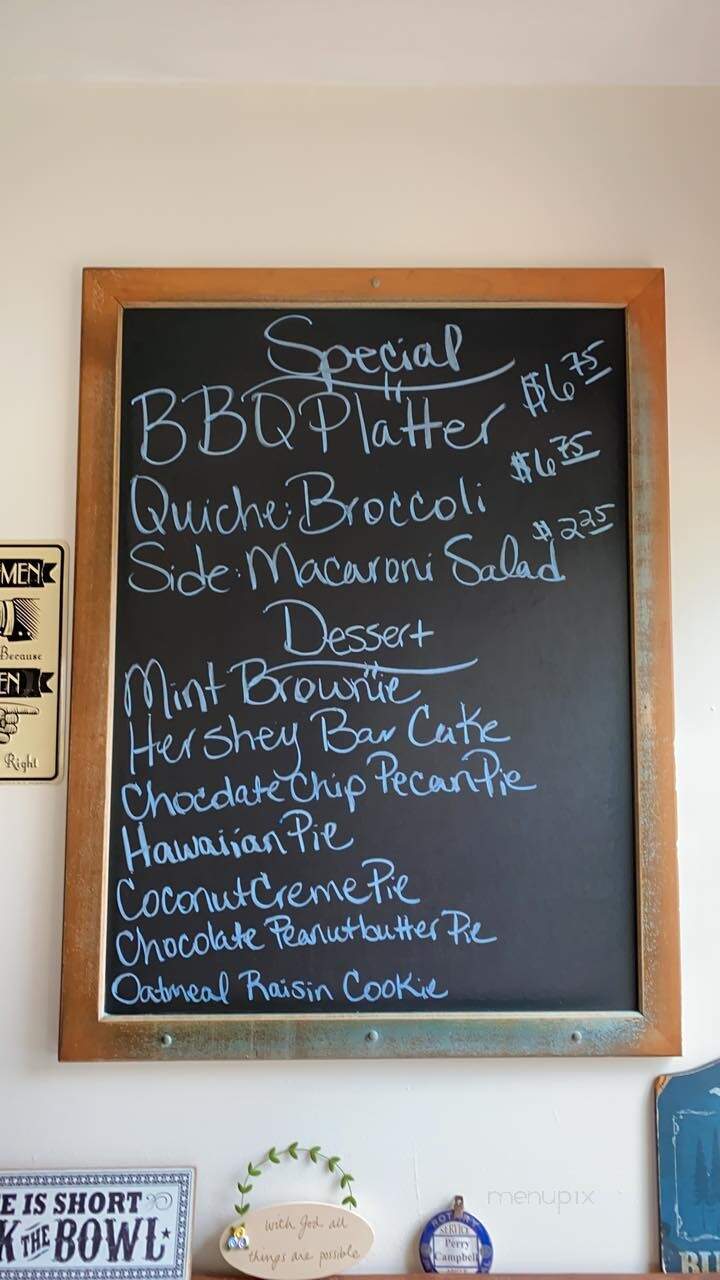 Special
BBQ Platter $6 75
Quiche: Broccoli $6 75
Side: Macaroni Salad $2 25
Dessert
Mint Brownie
Hershey Bar Cake
Chocolate Chip Pecan Pie
Hawaiian Pie
Coconut Creme Pie
Chocolate Peanutbutter Pie
Oatmeal Raisin Cookie
MEN
Because
EN
Right
E IS SHORT
K THE BOWL
with God all
things are possible
ROTARY
SERVICE
Perry
Campbell
menupix